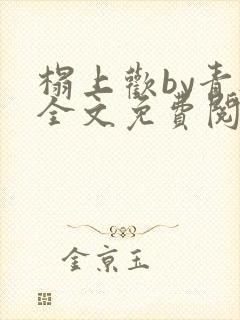 榻上歡by青
全文免費閱
金京玉